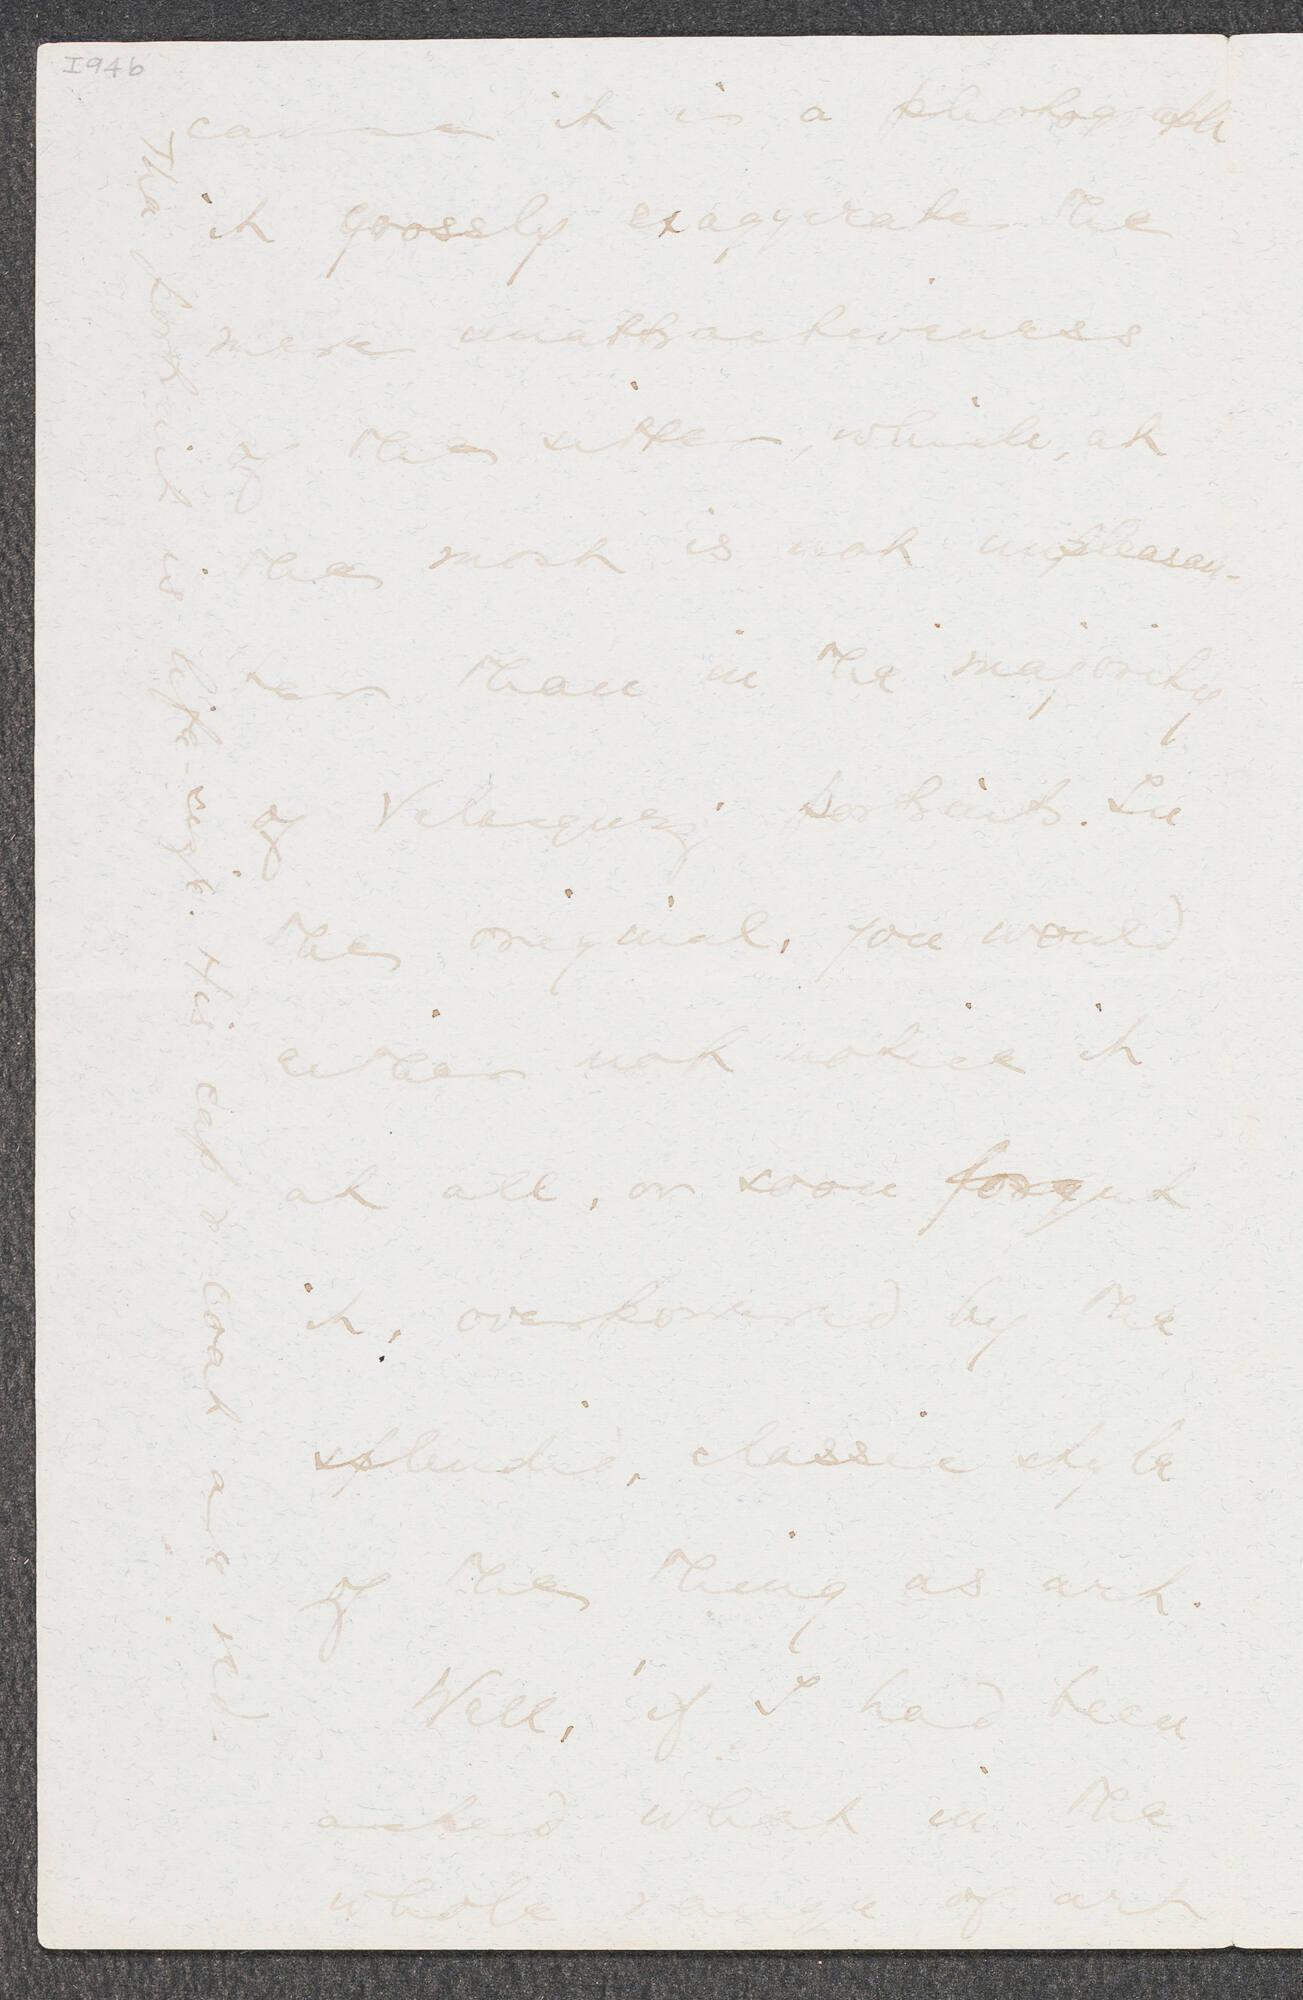 I94b
cause it is a photograph
it grossly exaggerates the
mere unattractiveness
of the sitter, which, at
the most is not unpleasan-
ter than in the majority
of Velasquez' portraits. In
the original, you would
either not notice it
at all, or soon forget
it, overpowered by the
splendid, classic style
of the thing as art.
Well, if I had been
asked what in the
whole range of art
The portrait is life-size. His cap & coat are red.